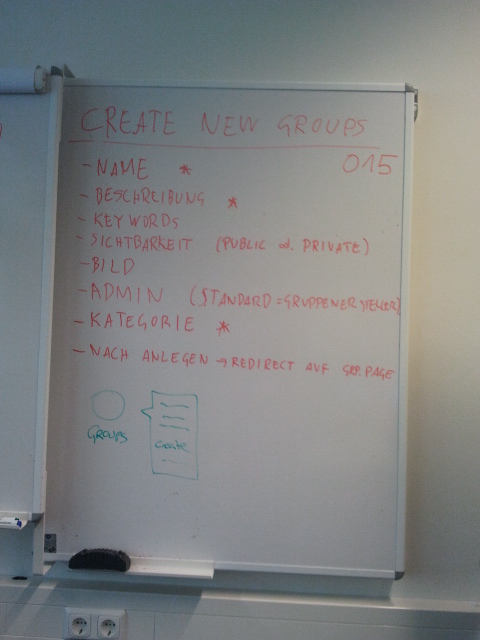 CREATE NEW GROUPS
015
- NAME *
- BESCHREIBUNG *
- KEYWORDS
- SICHTBARKEIT (PUBLIC od. PRIVATE)
- BILD
- ADMIN (STANDARD = GRUPPENERSTELLER)
- KATEGORIE *
- NACH ANLEGEN → REDIRECT AUF GRP. PAGE
GROUPS
Create